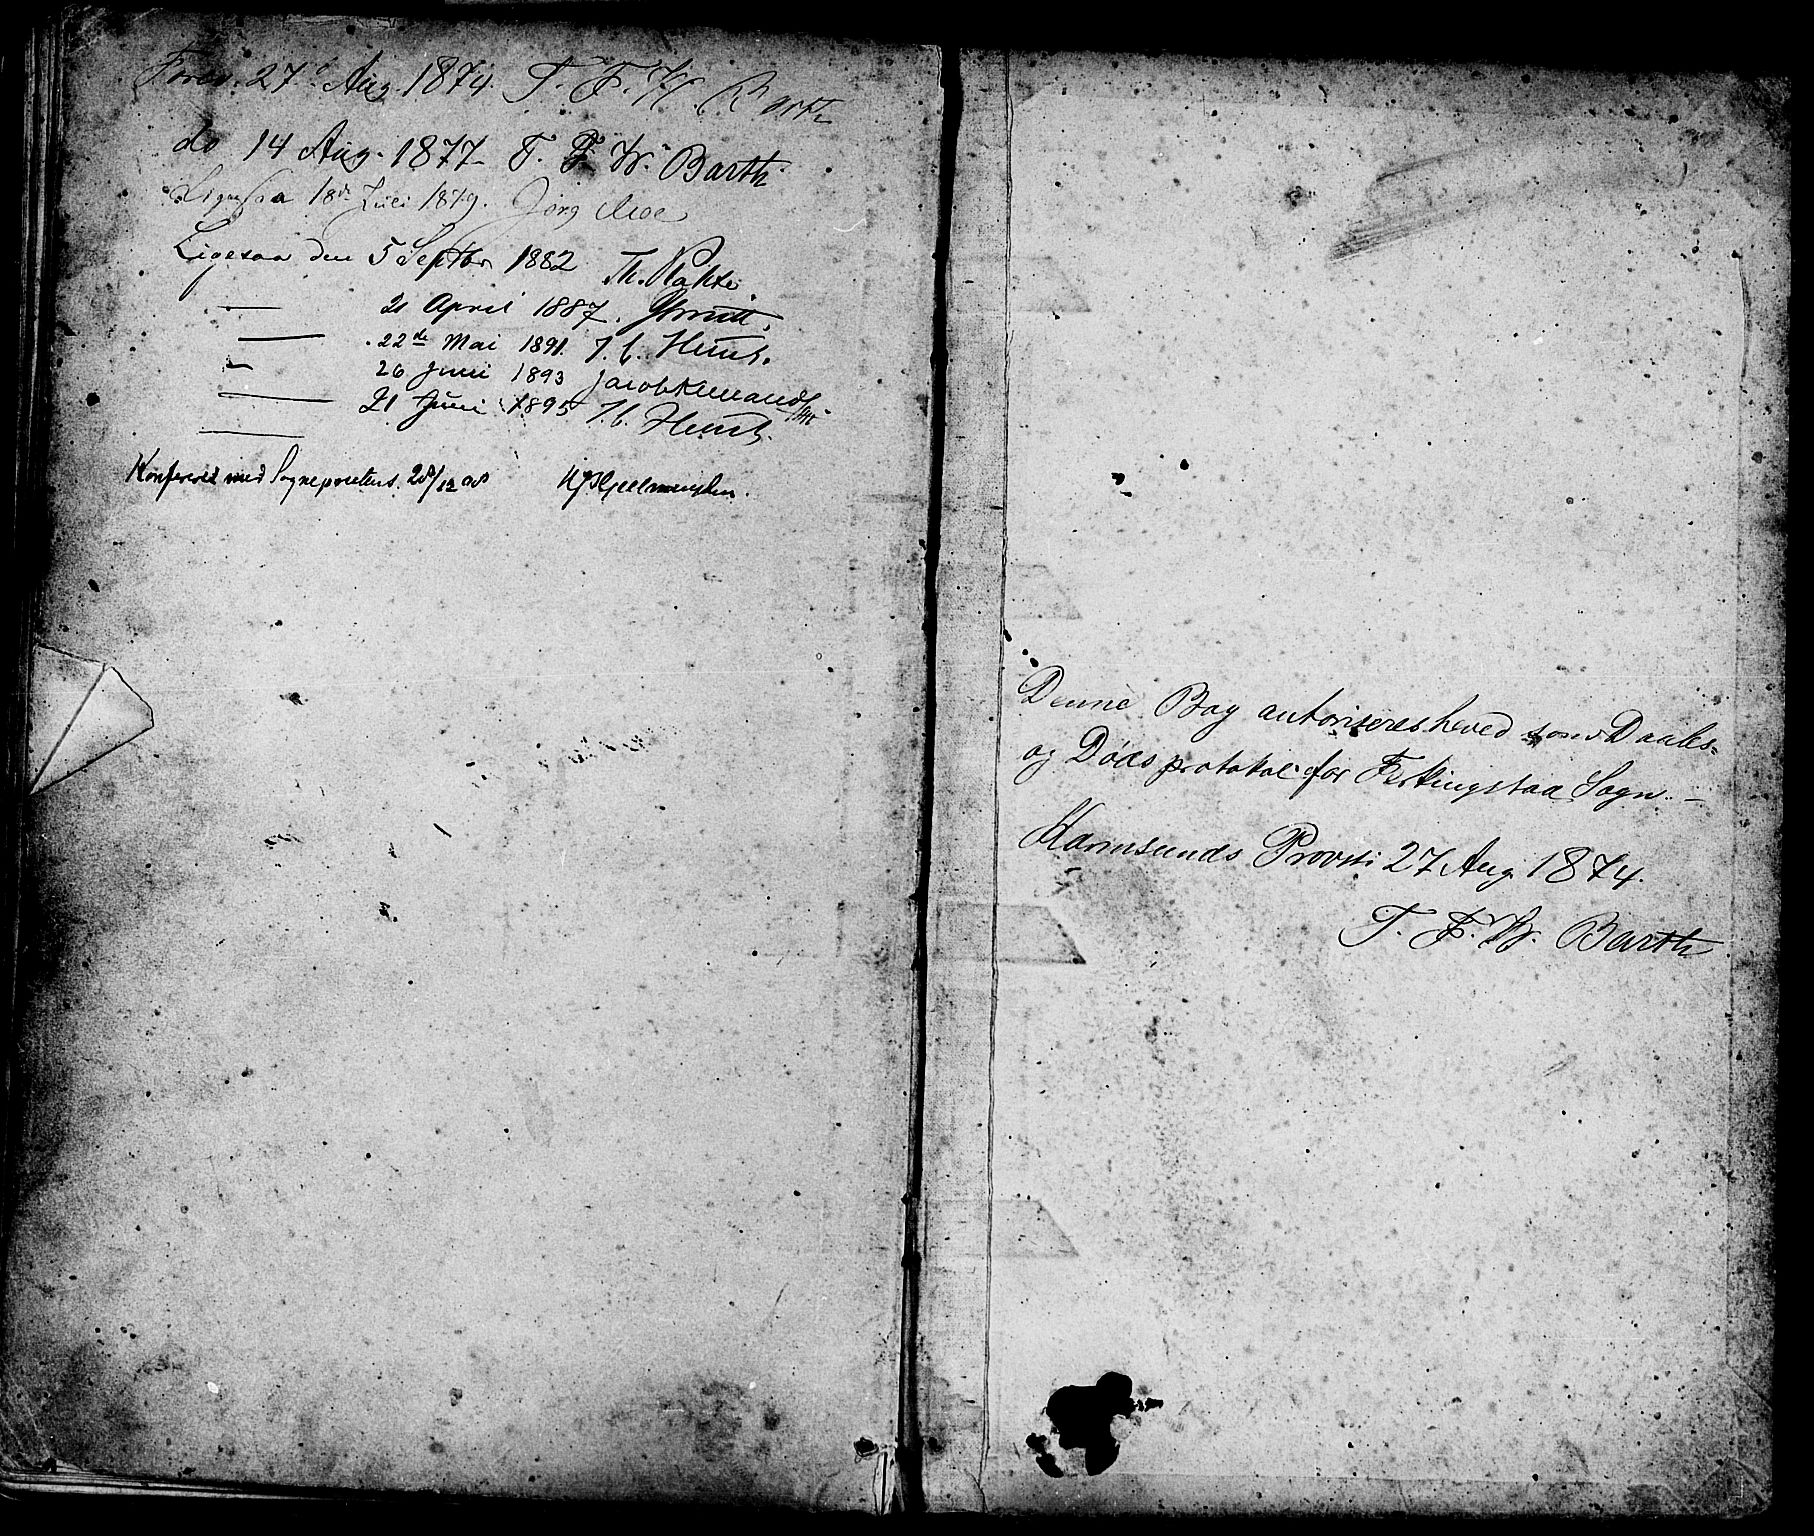 Forev. 27d Aug. 1874. T. F. W. Barth
do 14 Aug. 1877 T. F. W. Barth
Ligesaa 18de Juli 1879. Jörg Moe
Ligesaa den 5 Septbr 1882
— 21 April 1887.
— 22de Mai 1891. J. C. Heuch.
— 26 Juni 1893
— 21 Juni 1895 J. C. Heuch.
Konfereret med Sogneprestens 28/12 08
Denne Bog autoriseres herved som Daabs-
og Dødsprotokol for Ferkingstad Sogn. —
Karmsunds Provsti 27 Aug 1874.
T. F. W. Barth